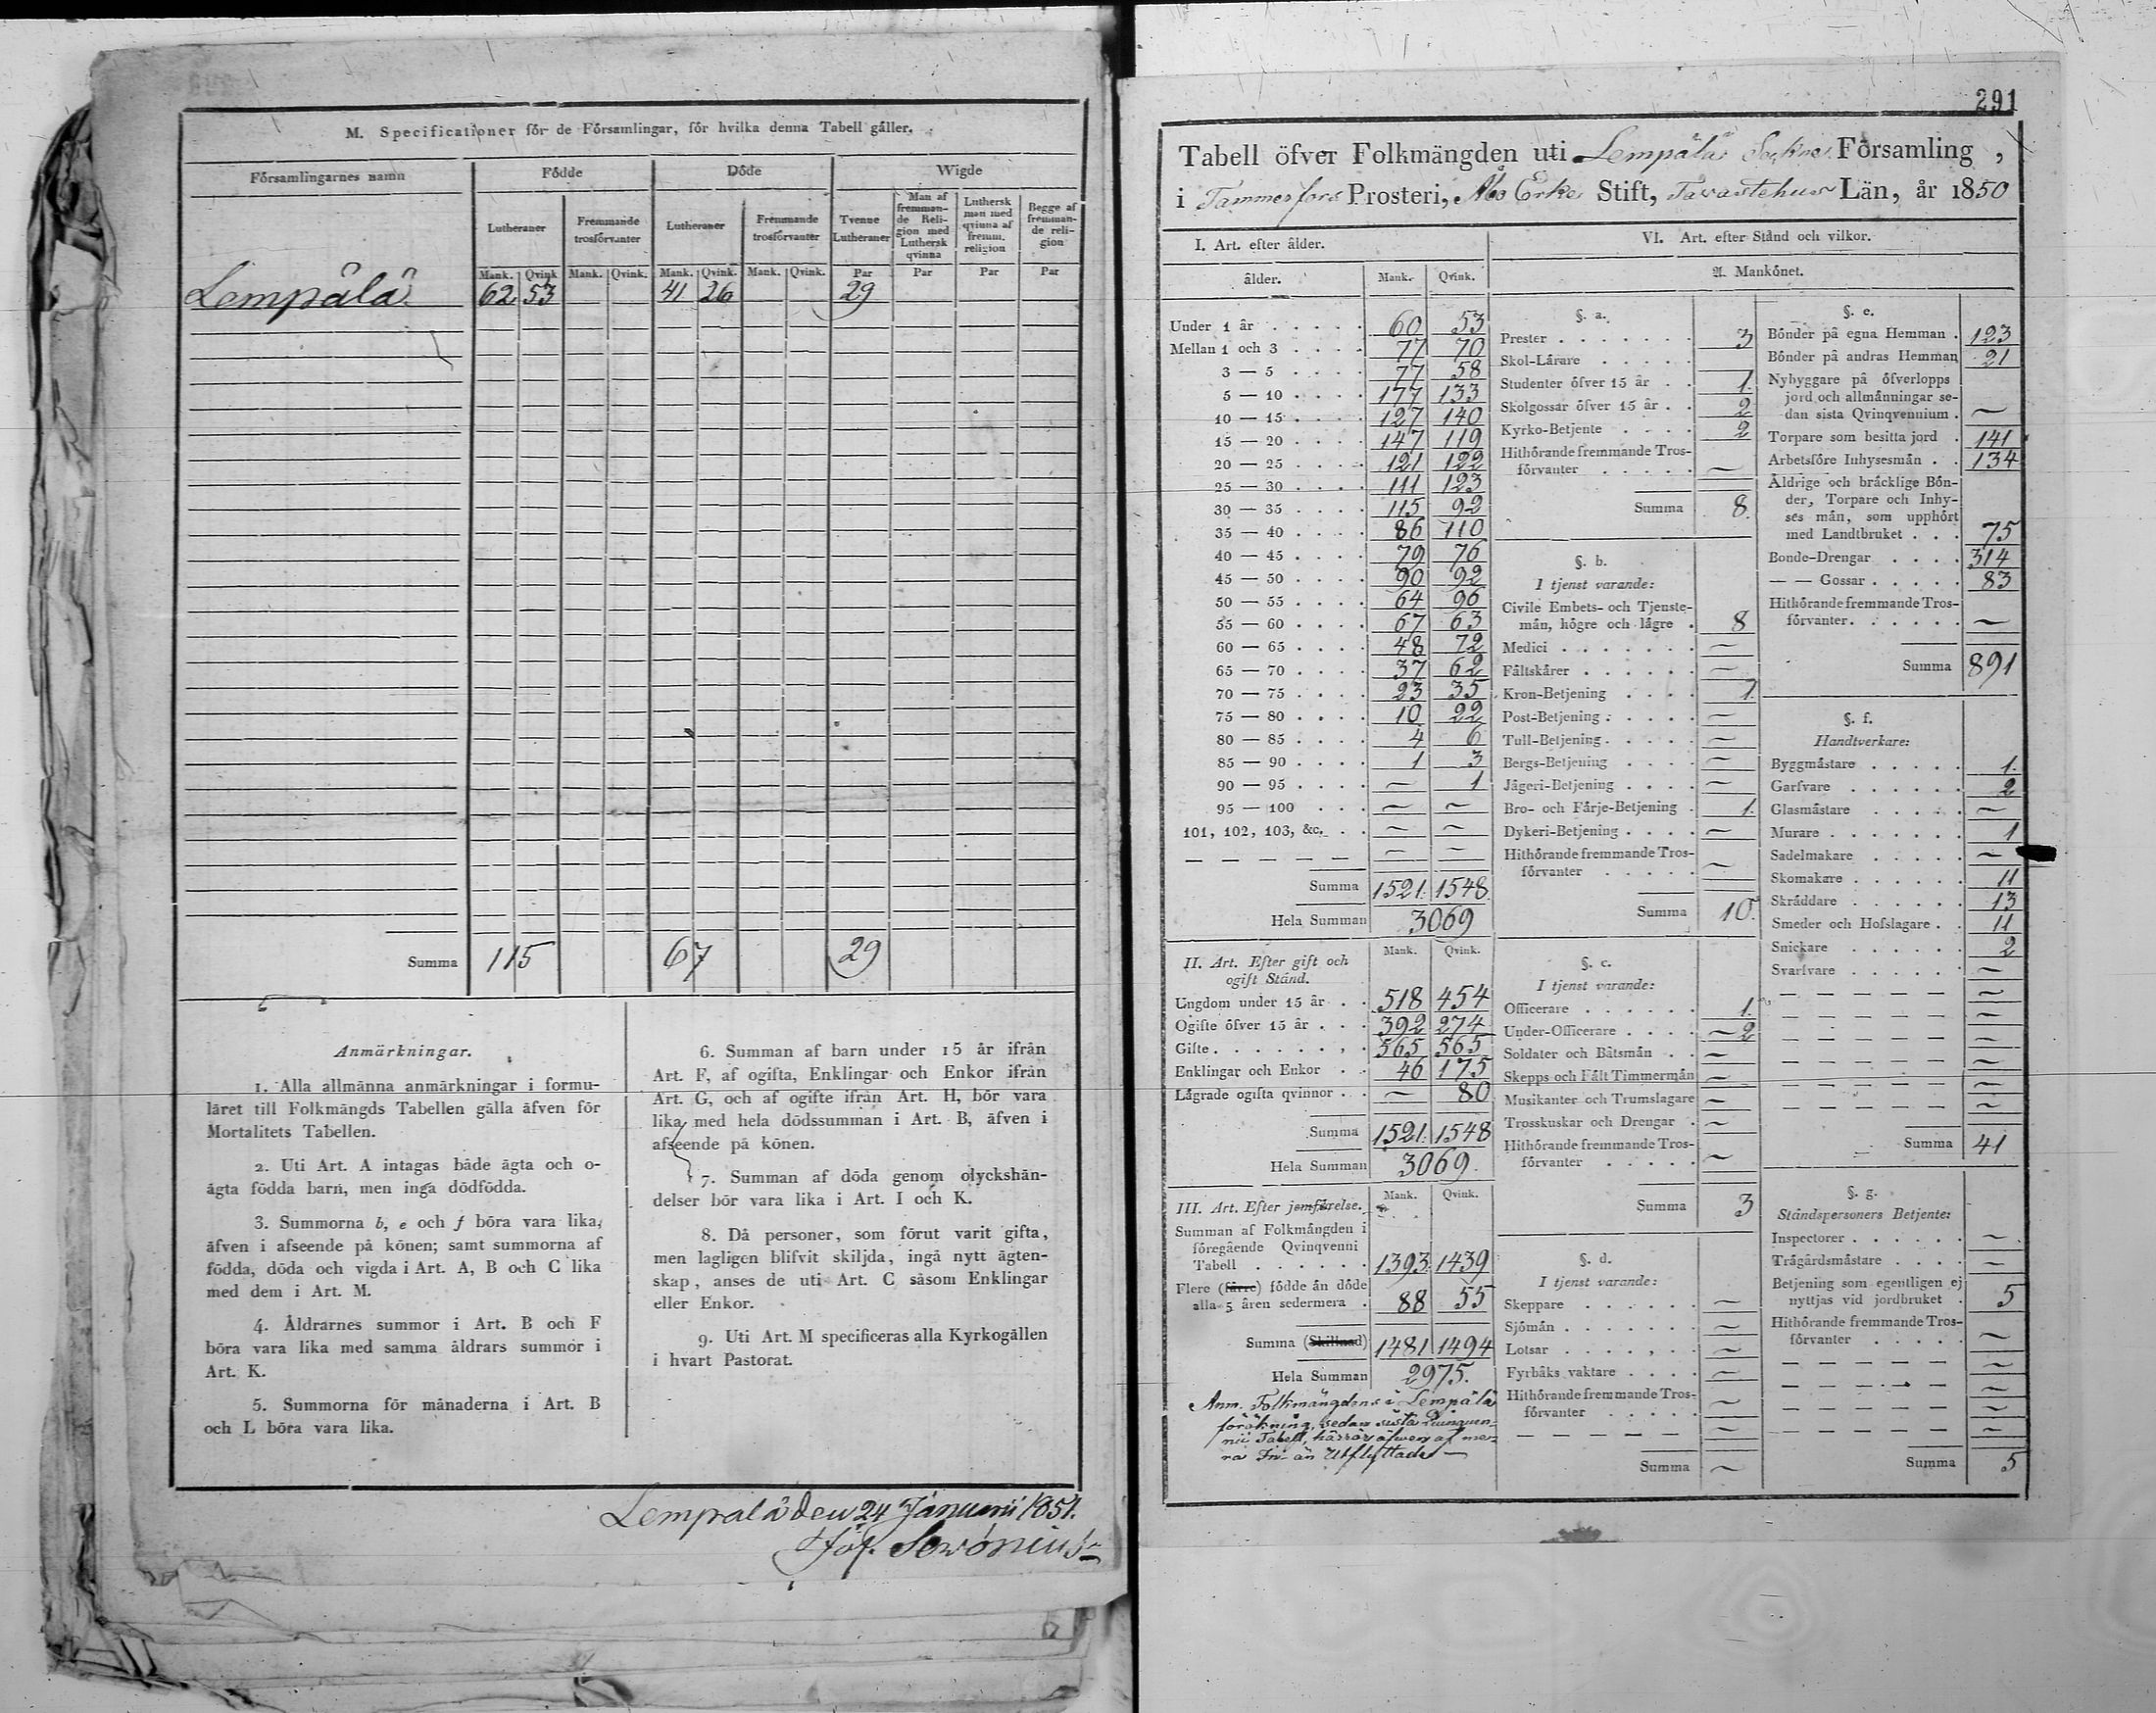 M. Specificationer för de Församlingar, för hvilka denna Tabell gäller.
Församlingarnes namn
Födde
Döde
Wigde
Lutheraner
Fremmande trosförvanter
Lutheraner
Fremmande trosförvanter
Tvenne Lutheraner
Man af fremmande Religion med Luthersk qvinna
Luthersk man med qvinna af fremm. religion
Begge af fremmande religion
Mank. Qvink. Mank. Qvink. Mank. Qvink. Mank. Qvink. Par Par Par Par
Lempälä 62 53 41 26 29
Summa 115 67 29
Anmärkningar.
1. Alla allmänna anmärkningar i formu-
läret till Folkmängds Tabellen gälla äfven för
Mortalitets Tabellen.
2. Uti Art. A intagas både ägta och o-
ägta födda barn, men inga dödfödda.
3. Summorna b, e och f böra vara lika,
äfven i afseende på könen; samt summorna af
födda, döda och vigda i Art. A, B och C lika
med dem i Art. M.
4. Åldrarnes summor i Art. B och F
böra vara lika med samma åldrars summor i
Art. K.
5. Summorna för månaderna i Art. B
och L böra vara lika.
6. Summan af barn under 15 år ifrån
Art. F, af ogifta, Enklingar och Enkor ifrån
Art. G, och af ogifte ifrån Art. H, bör vara
lika med hela dödssumman i Art. B, äfven i
afseende på könen.
7. Summan af döda genom olyckshän-
delser bör vara lika i Art. I och K.
8. Då personer, som förut varit gifta,
men lagligen blifvit skiljda, ingå nytt ägten-
skap, anses de uti Art. C såsom Enklingar
eller Enkor.
9. Uti Art. M specificeras alla Kyrkogällen
i hvart Pastorat.
Lempälä den 24 Januarii 1851.
291
Tabell öfver Folkmängden uti Lempälä Sockne Församling,
i Tammerfors Prosteri, Åbo Erke Stift, Tavastehus Län, år 1850
I. Art. efter ålder.
ålder. Mank. Qvink.
Under 1 år 60 53
Mellan 1 och 3 77 70
3 — 5 77 58
5 — 10 177 133
10 — 15 127 140
15 — 20 147 119
20 — 25 121 122
25 — 30 111 123
30 — 35 115 92
35 — 40 86 110
40 — 45 79 76
45 — 50 90 92
50 — 55 64 96
55 — 60 67 63
60 — 65 48 72
65 — 70 37 62
70 — 75 23 35
75 — 80 10 22
80 — 85 4 6
85 — 90 1 3
90 — 95 — 1
95 — 100 — —
101, 102, 103, &c. — —
Summa 1521. 1548.
Hela Summan 3069
II. Art. Efter gift och
ogift Stånd.
Mank. Qvink.
Ungdom under 15 år 518 454
Ogifte öfver 15 år 392 274
Gifte 565 565
Enklingar och Enkor 46 175
Lägrade ogifta qvinnor — 80
Summa 1521. 1548
Hela Summan 3069.
III. Art. Efter jemförelse. Mank. Qvink.
Summan af Folkmängden i
föregående Qvinqvenni
Tabell 1393. 1439
Flere (färre) födde än döde
alla 5 åren sedermera 88 55
Summa (Skillnad) 1481 1494
Hela Summan 2975.
Anm. Folkmängdens i Lempälä
förökning, sedan sista Quinquen-
nii Tabell, härrör äfwen af me-
ra In- än Utflyttade —
VI. Art. efter Stånd och vilkor.
A. Mankönet.
§. a.
Prester 3
Skol-Lärare
Studenter öfver 15 år 1.
Skolgossar öfver 15 år 2
Kyrko-Betjente 2
Hithörande fremmande Tros-
förvanter —
Summa 8.
§. b.
I tjenst varande:
Civile Embets- och Tjenste-
män, högre och lägre 8
Medici —
Fältskärer —
Kron-Betjening 1.
Post-Betjening —
Tull-Betjening —
Bergs-Betjening —
Jägeri-Betjening —
Bro- och Färje-Betjening 1.
Dykeri-Betjening —
Hithörande fremmande Tros-
förvanter —
Summa 10.
§. c.
I tjenst varande:
Officerare 1.
Under-Officerare — 2
Soldater och Båtsmän —
Skepps och Fält Timmermän —
Musikanter och Trumslagare —
Trosskuskar och Drengar —
Hithörande fremmande Tros-
förvanter —
Summa 3
§. d.
I tjenst varande:
Skeppare —
Sjömän —
Lotsar —
Fyrbåks vaktare —
Hithörande fremmande Tros-
förvanter —
— — — — — —
Summa —
§. e.
Bönder på egna Hemman 123
Bönder på andras Hemman 21
Nybyggare på öfverlopps
jord och allmänningar se-
dan sista Qvinqvennium —
Torpare som besitta jord 141
Arbetsföre Inhysesmän 134
Åldrige och bräcklige Bön-
der, Torpare och Inhy-
ses män, som upphört
med Landtbruket 75
Bonde-Drengar 314
— — Gossar 83
Hithörande fremmande Tros-
förvanter —
Summa 891
§. f.
Handtverkare:
Byggmästare 1.
Garfvare 2
Glasmästare —
Murare 1
Sadelmakare —
Skomakare 11
Skräddare 13
Smeder och Hofslagare 11
Snickare 2
Svarfvare —
Summa 41
§. g.
Ståndspersoners Betjente:
Inspectorer —
Trägårdsmästare —
Betjening som egentligen ej
nyttjas vid jordbruket 5
Hithörande fremmande Tros-
förvanter —
Summa 5